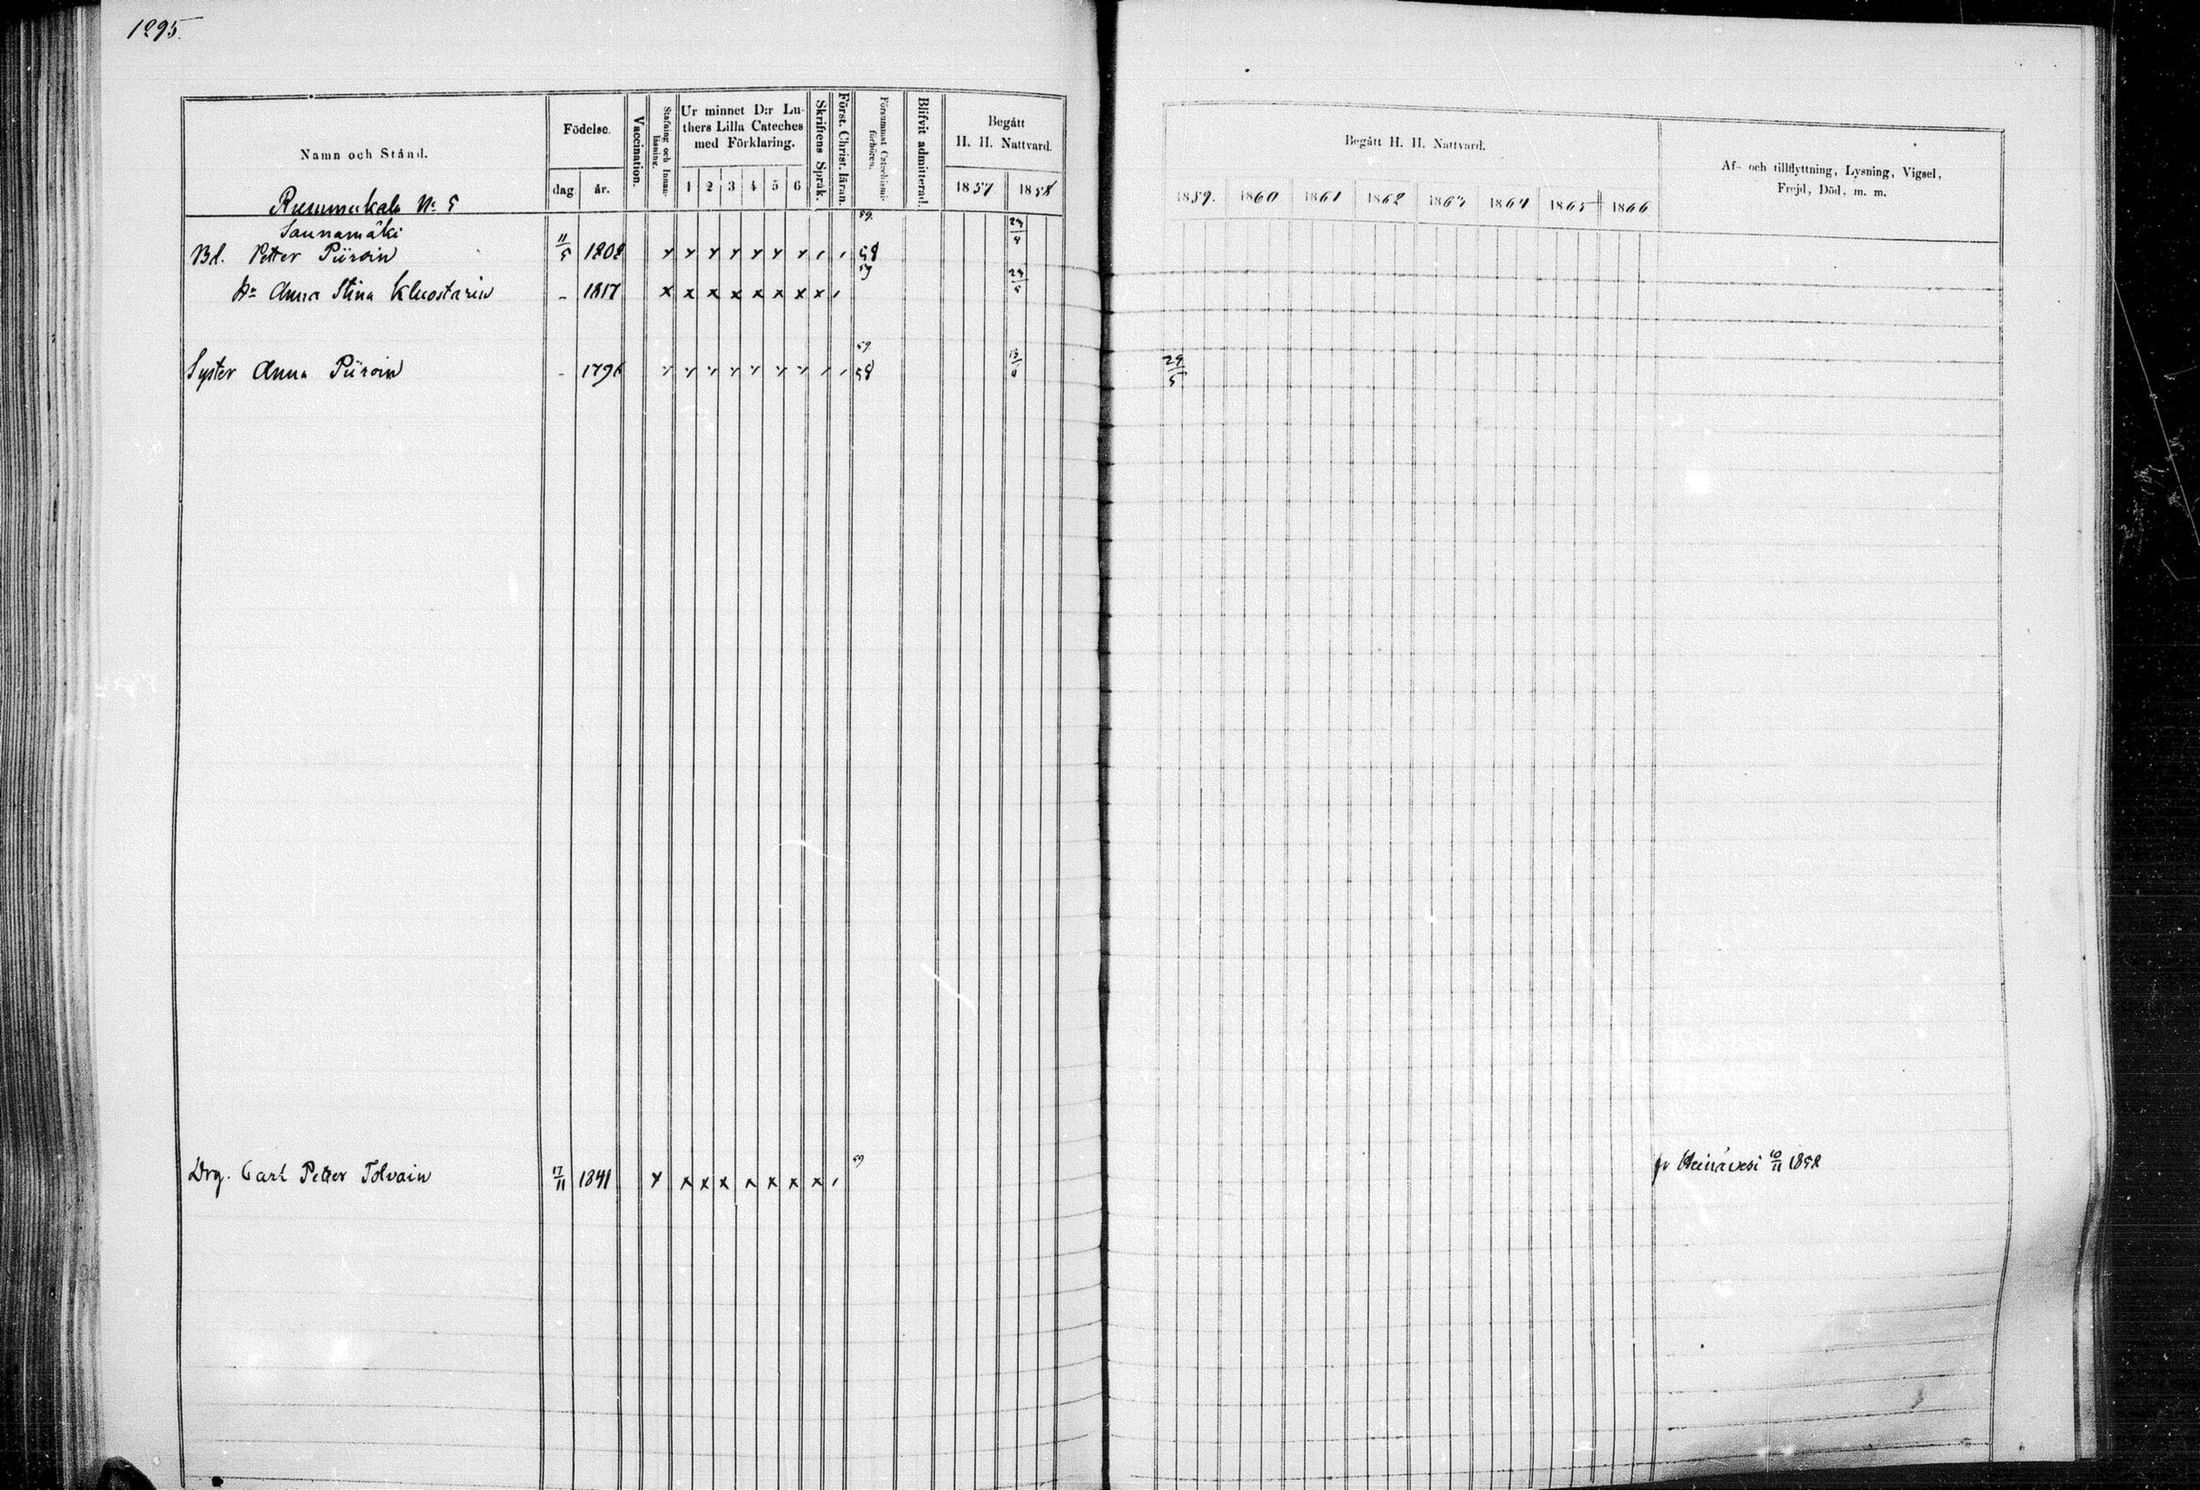 1295.
Namn och Stånd.
Födelse.
dag. år.
Vaccination.
Stafning och Innan-läsning.
Ur minnet D:r Lu-
thers Lilla Cateches
med Förklaring.
1 2 3 4 5 6
Skriftens Språk.
Först. Christ. läran.
Försummat Catechismi-förhören.
Blifvit admitterad.
Begått
H. H. Nattvard.
1857 1858
Begått H. H. Nattvard.
1859. 1860 1861 1862 1863 1864 1865 1866
Af- och tillflyttning, Lysning, Vigsel,
Frejd, Död, m. m.
No 5
Saunamäki
Bd. Petter Piiroin 11/5 1808 58 59
Hu Anna Stina 1817 59
Syster Anna Piiroin - 1796 58 59 29/5
Drg. Carl Petter Tolvain 17/11 1841 59 fr Heinävesi 10/11 1858